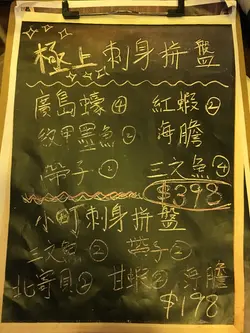 極上刺身拼盤
廣島蠔④ 紅蝦②
紋甲墨魚② 海膽
帶子② 三文魚④
$398
小町刺身拼盤
三文魚② 帶子②
北寄貝② 甘蝦② 海膽
$198